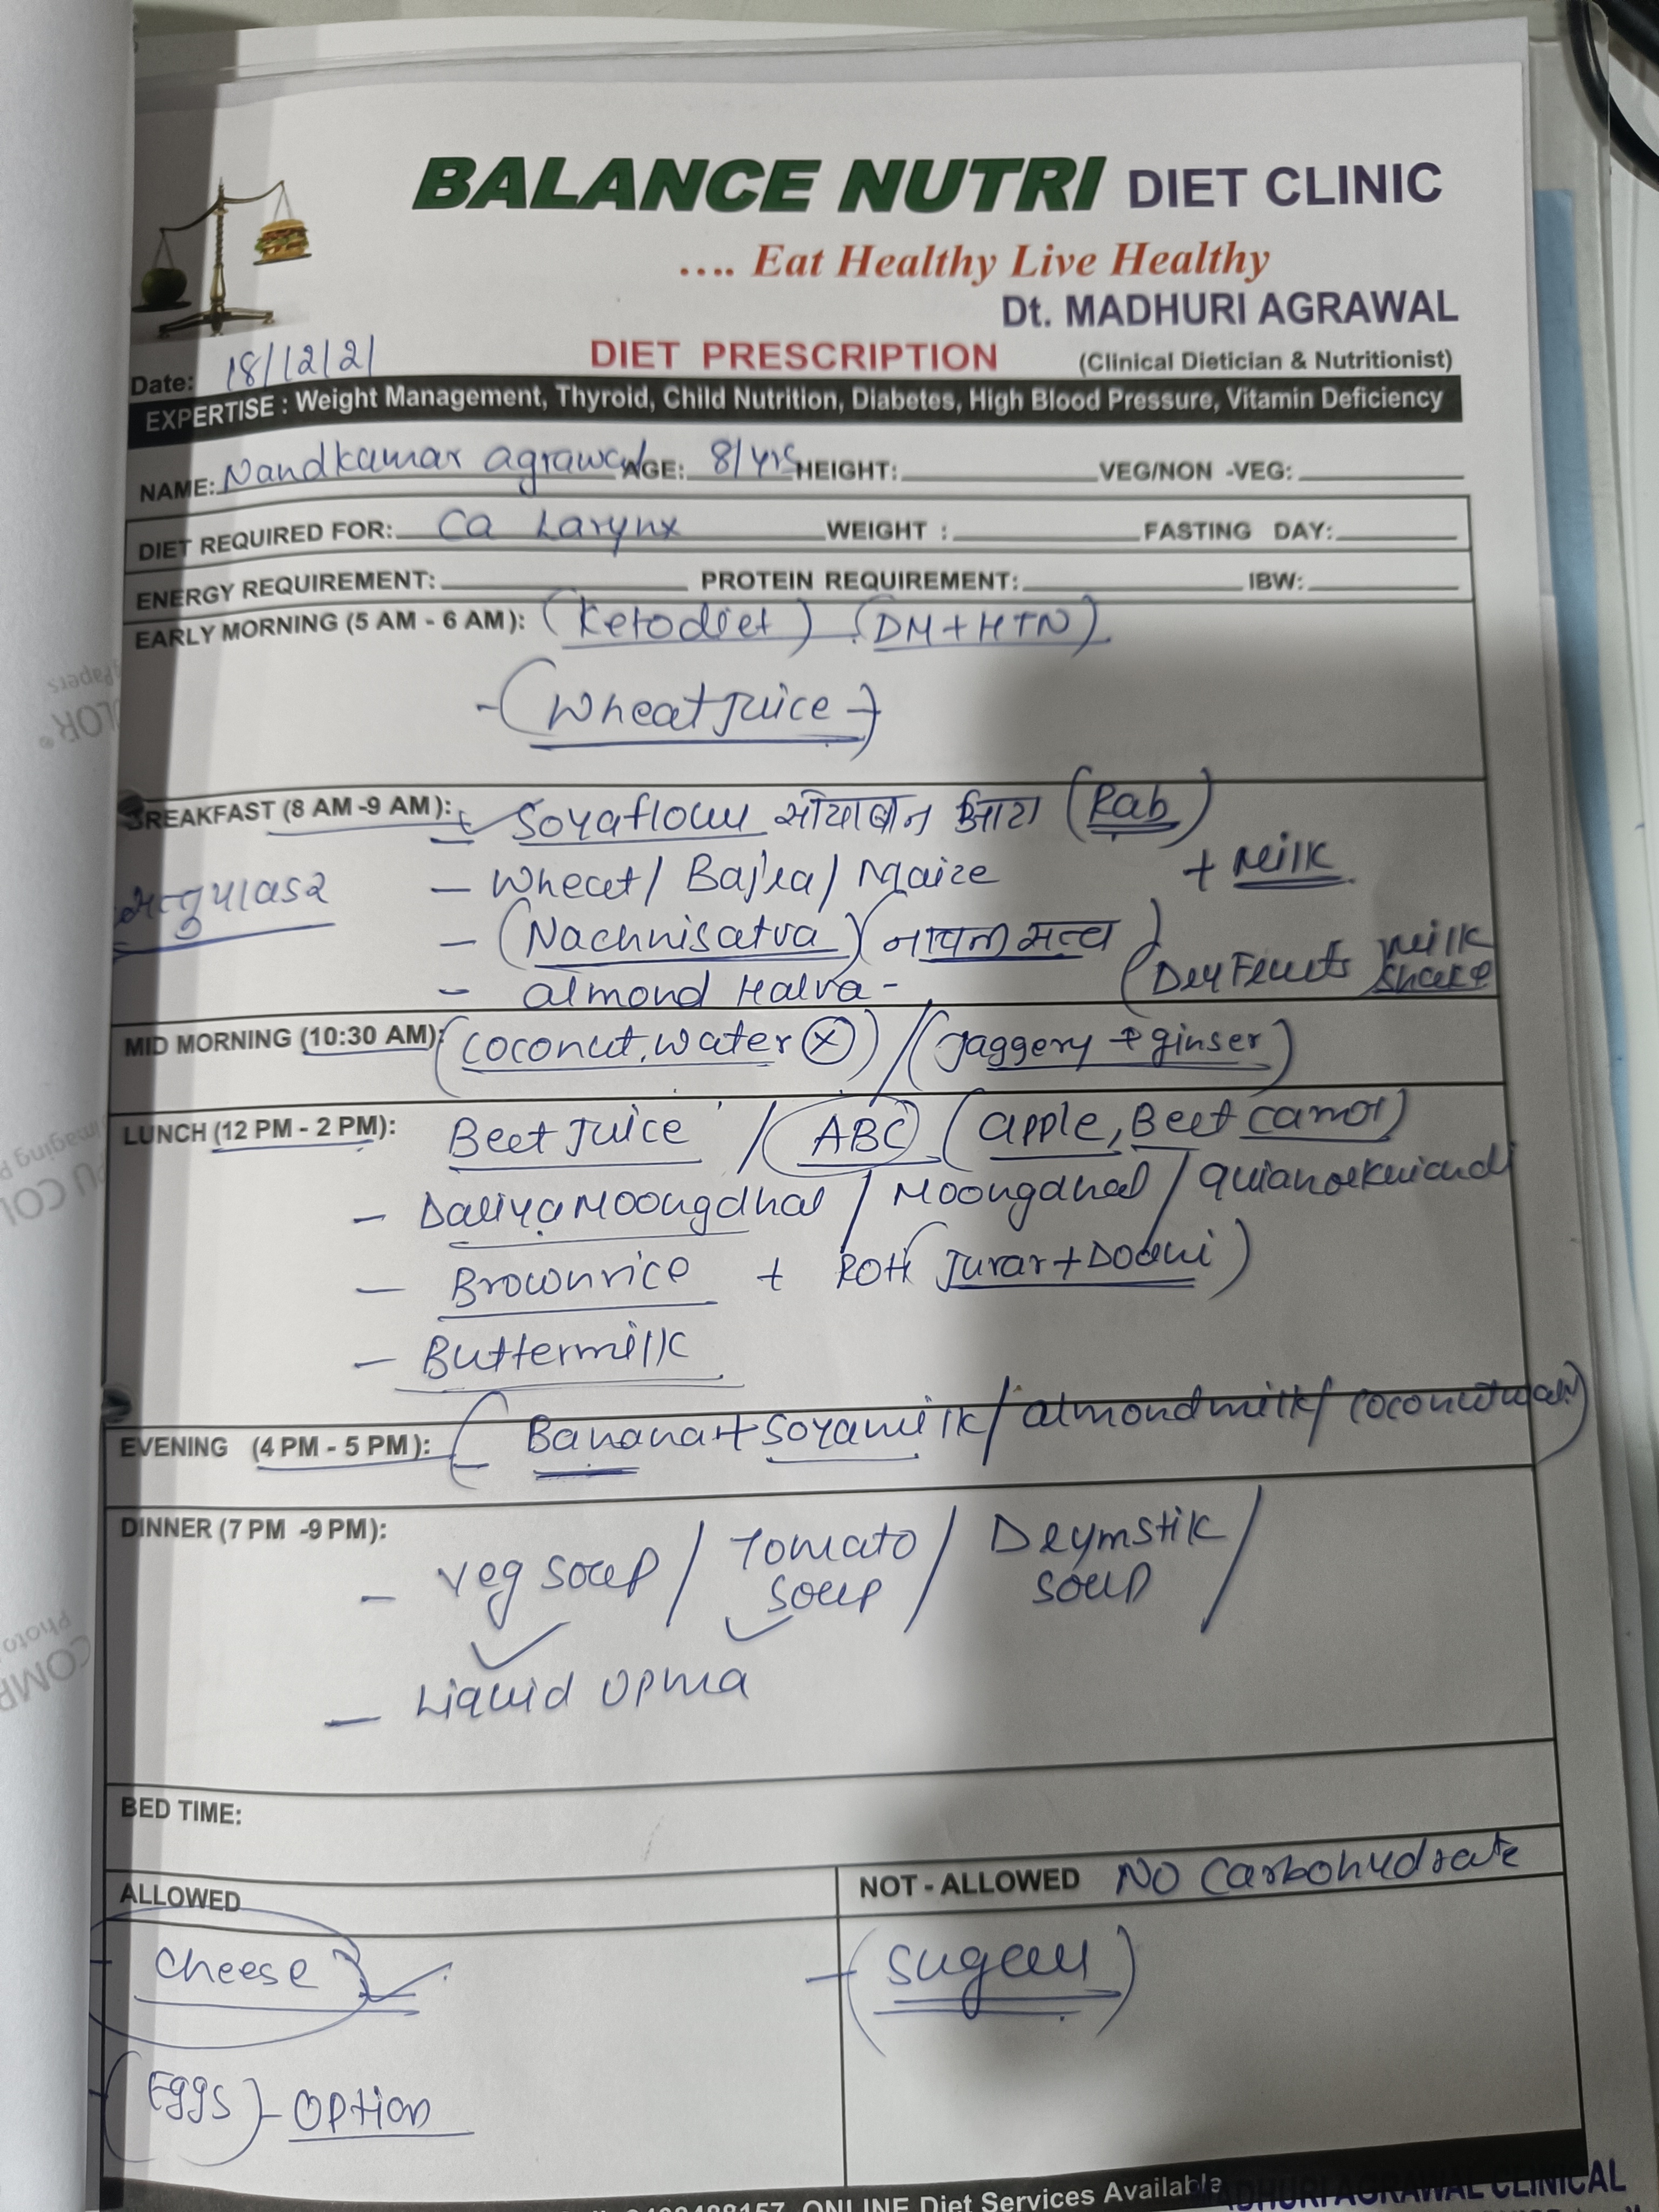 BALANCE NUTRI DIET CLINIC
.... Eat Healthy Live Healthy
Dt. MADHURI AGRAWAL
DIET PRESCRIPTION (Clinical Dietician & Nutritionist)
Date: 18/12/21
EXPERTISE : Weight Management, Thyroid, Child Nutrition, Diabetes, High Blood Pressure, Vitamin Deficiency
NAME: Nandkumar agrawal AGE: 81yrs HEIGHT: VEG/NON -VEG:
DIET REQUIRED FOR: Ca Larynx WEIGHT : FASTING DAY:
ENERGY REQUIREMENT: PROTEIN REQUIREMENT: IBW:
EARLY MORNING (5 AM - 6 AM): (Ketodiet) (DM+HTN)
-(Wheat Juice-)
BREAKFAST (8 AM -9 AM): Soyaflour सोयाबीन आटा (Rab)
- Wheat / Bajra / Maize + Milk
- (Nachnisatva) (नाचनी सत्व)
- almond Halva - (Dry Fruits Milk Shake
MID MORNING (10:30 AM): (Coconut water ⊗) / (Jaggery + ginger)
LUNCH (12 PM - 2 PM): Beet Juice / ABC (apple, Beet carrot)
- Daliya Moongdhal / Moongdhal /
- Brownrice + Roti (Juvar +
- Buttermilk
EVENING (4 PM - 5 PM): (- Banana + Soyamilk / almondmilk / coconutwater)
DINNER (7 PM -9 PM):
- Veg soup / Tomato soup / Drymstik soup /
- Liquid Upma
BED TIME:
ALLOWED
NOT - ALLOWED NO Carbohydrate
- Cheese
- (Sugar)
- (Eggs) - Option
ONLINE Diet Services Available
MADHURI AGRAWAL CLINICAL